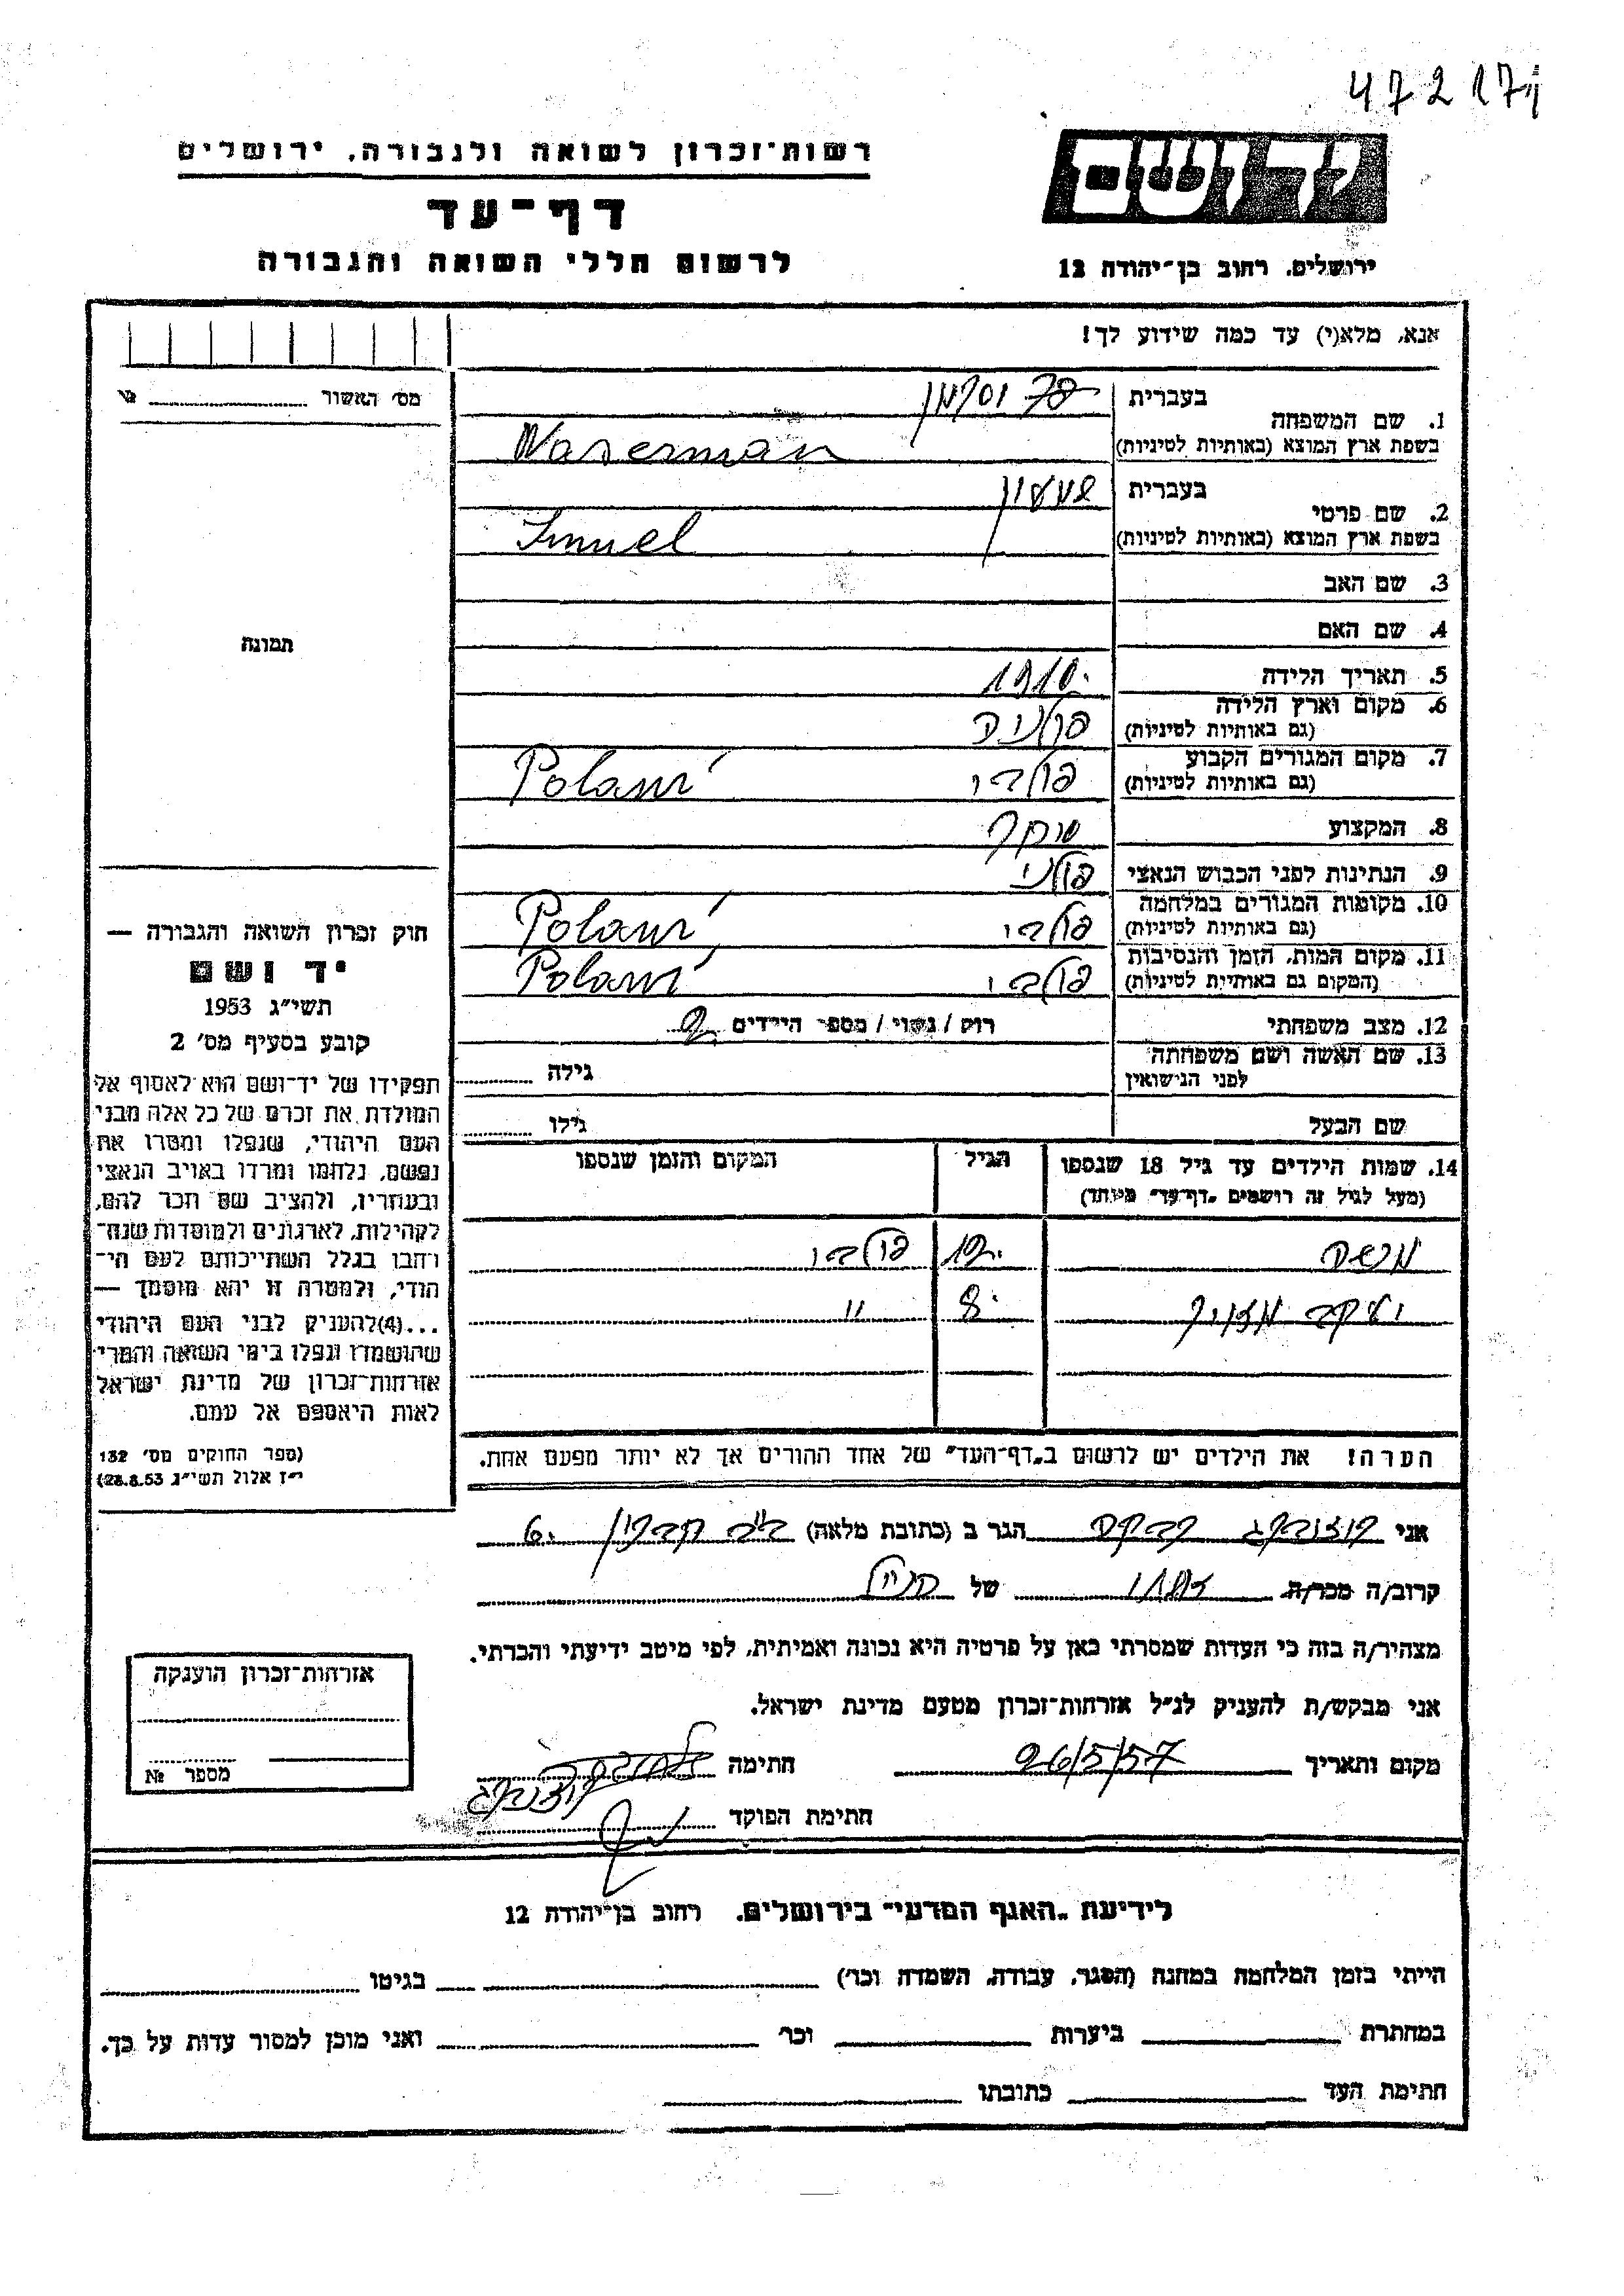 472 17
רשות־זכרון לשואה ולגבורה, ירושלים
יד ושם
דף־עד
לרשום חללי השואה והגבורה
ירושלים, רחוב בן־יהודה 12
אנא, מלא(י) עד כמה שידוע לך!
מס' האשור № 
1. שם המשפחה בעברית וסרמן
בשפת ארץ המוצא (באותיות לטיניות) Waserman
2. שם פרטי בעברית שמעון
בשפת ארץ המוצא (באותיות לטיניות) Smuel
3. שם האב
4. שם האם
תמונה
5. תאריך הלידה 1910
6. מקום וארץ הלידה
(גם באותיות לטיניות) פולניה
7. מקום המגורים הקבוע
(גם באותיות לטיניות) Polani
8. המקצוע סוחר
9. הנתינות לפני הכבוש הנאצי פולני
10. מקומות המגורים במלחמה
(גם באותיות לטיניות) Polani
11. מקום המות, הזמן והנסיבות
(המקום גם באותיות לטיניות) Polani
12. מצב משפחתי רוק / נשוי / מספר הילדים 2
13. שם האשה ושם משפחתה
לפני הנישואין גילה
שם הבעל גילו
14. שמות הילדים עד גיל 18 שנספו הגיל המקום והזמן שנספו
(מעל לגיל זה רושמים „דף־עד” מיוחד)
משה 12
יעקב 8 "
הערה! את הילדים יש לרשום ב„דף־העד” של אחד ההורים אך לא יותר מפעם אחת.
חוק זכרון השואה והגבורה —
יד ושם
תשי״ג 1953
קובע בסעיף מס' 2
תפקידו של יד־ושם הוא לאסוף אל
המולדת את זכרם של כל אלה מבני
העם היהודי, שנפלו ומסרו את
נפשם, נלחמו ומרדו באויב הנאצי
ובעוזריו, ולהציב שם וזכר להם,
לקהילות, לארגונים ולמוסדות שנח־
רבו בגלל השתייכותם לעם הי־
הודי, ולמטרה זו יהא מוסמך —
...(4) להעניק לבני העם היהודי
שהושמדו ונפלו בימי השואה והמרי
אזרחות־זכרון של מדינת ישראל
לאות היאספם אל עמם.
(ספר החוקים מס' 132
י״ז אלול תשי״ג 28.8.53)
אני רבקה הגר ב (כתובת מלאה) 6
קרוב/ה מכר/ה של
מצהיר/ה בזה כי העדות שמסרתי כאן על פרטיה היא נכונה ואמיתית, לפי מיטב ידיעתי והכרתי.
אני מבקש/ת להעניק לנ״ל אזרחות־זכרון מטעם מדינת ישראל.
מקום ותאריך 26/5/57 חתימה
חתימת הפוקד
אזרחות־זכרון הוענקה
מספר №
לידיעת „האגף המדעי” בירושלים, רחוב בן־יהודה 12
הייתי בזמן המלחמה במחנה (הסגר, עבודה, השמדה וכו') בגיטו
במחתרת ביערות וכו' ואני מוכן למסור עדות על כך.
חתימת העד כתובתו